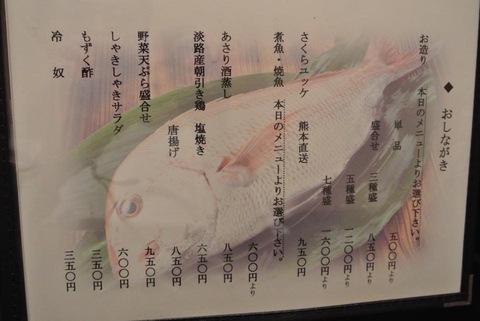 ◆ おしながき
お造り 本日のメニューよりお選び下さい。
単品 五〇〇円より
盛合せ 三種盛 八五〇円より
五種盛 一二〇〇円より
七種盛 一六〇〇円より
さくらユッケ 熊本直送 九五〇円
煮魚・焼魚 本日のメニューよりお選び下さい。 六〇〇円より
あさり酒蒸し 八五〇円
淡路産朝引き鶏 塩焼き 六五〇円
唐揚げ 八五〇円
野菜天ぷら盛合せ 九五〇円
しゃきしゃきサラダ 六〇〇円
もずく酢 三五〇円
冷奴 三五〇円